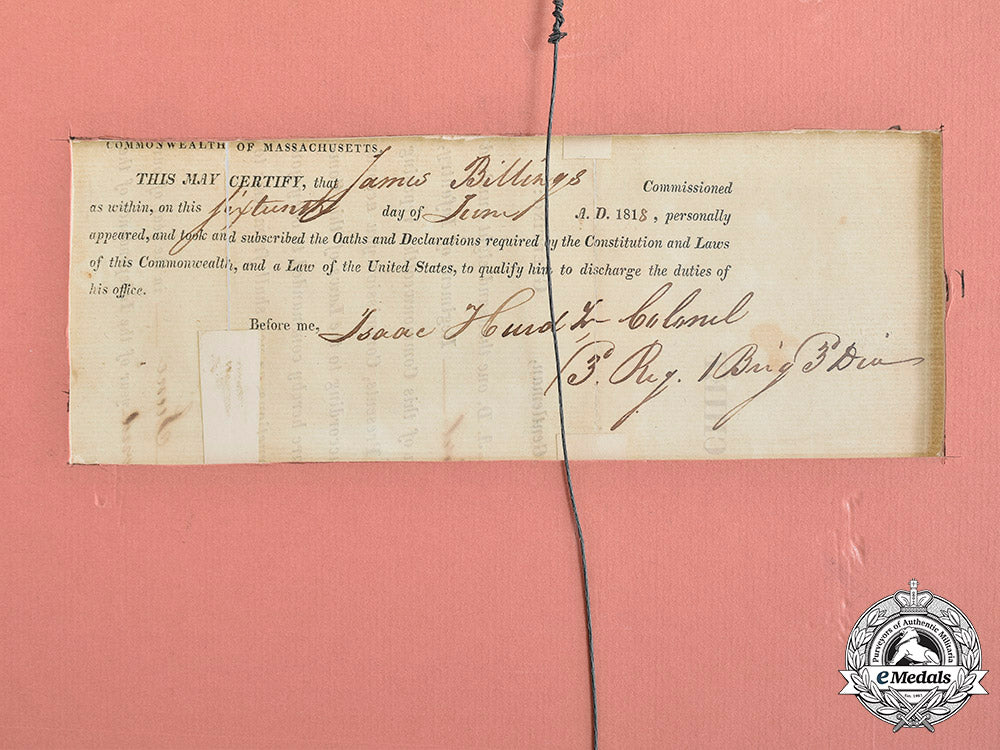 COMMONWEALTH OF MASSACHUSETTS.
THIS MAY CERTIFY, that James Billings Commissioned
as within, on this sixteenth day of June A. D. 1818, personally
appeared, and took and subscribed the Oaths and Declarations required by the Constitution and Laws
of this Commonwealth, and a Law of the United States, to qualify him to discharge the duties of
his office.
Before me, Isaac Hurd Jr Colonel
3d. Reg. 1 Brig 3d Div
Purveyors of Authentic Militaria
eMedals